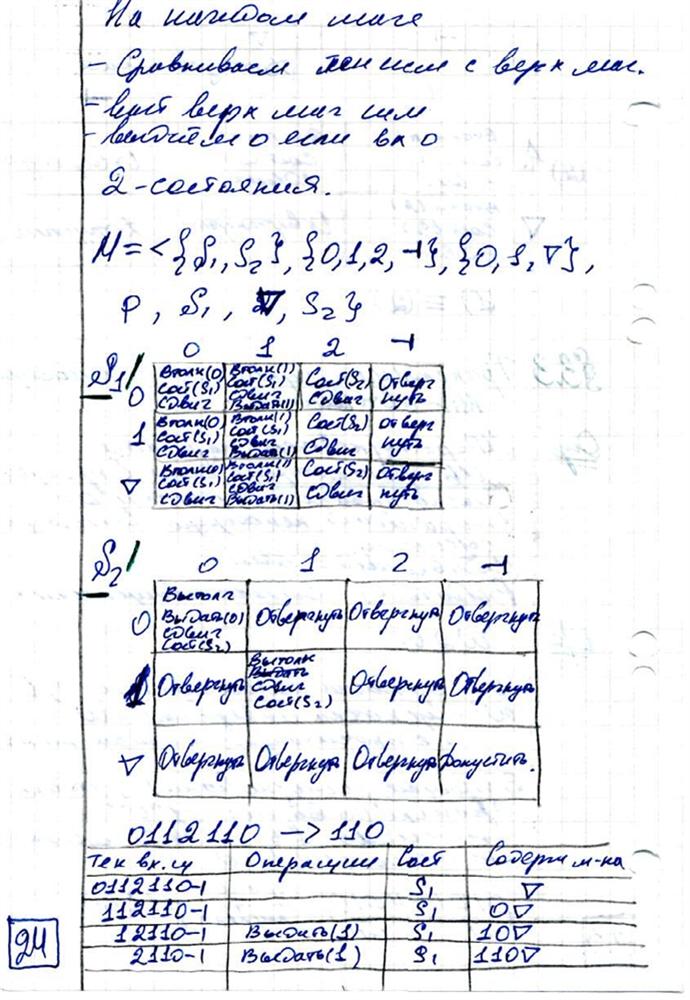 На каждом шаге
- Сравниваем с верх маг.
- верх маг
- если вх 0
2-состояния.
M = < {S1, S2}, {0,1,2,⊣}, {0,1,∇},
P, S1, ∇, S2}
S1 0 1 2 ⊣
0 Втолк(0) Сост(S1) Сдвиг | Втолк(1) Сост(S1) Сдвиг Выдать(1) | Сост(S2) Сдвиг | Отверг нуть
1 Втолк(0) Сост(S1) Сдвиг | Втолк(1) Сост(S1) Сдвиг Выдать(1) | Сост(S2) Сдвиг | Отверг нуть
∇ Втолк(0) Сост(S1) Сдвиг | Втолк(1) Сост(S1) Сдвиг Выдать(1) | Сост(S2) Сдвиг | Отверг нуть
S2 0 1 2 ⊣
0 Вытолк Выдать(0) Сдвиг Сост(S2) | Отвергнуть | Отвергнуть | Отвергнуть
1 Отвергнуть | Вытолк Сдвиг Сост(S2) | Отвергнуть | Отвергнуть
∇ Отвергнуть | Отвергнуть | Отвергнуть | Допустить.
0112110 → 110
Тек вх. Операции Сост Содерж м-на
0112110⊣ S1 ∇
112110⊣ S1 0∇
12110⊣ Выдать(1) S1 10∇
2110⊣ Выдать(1) S1 110∇
24